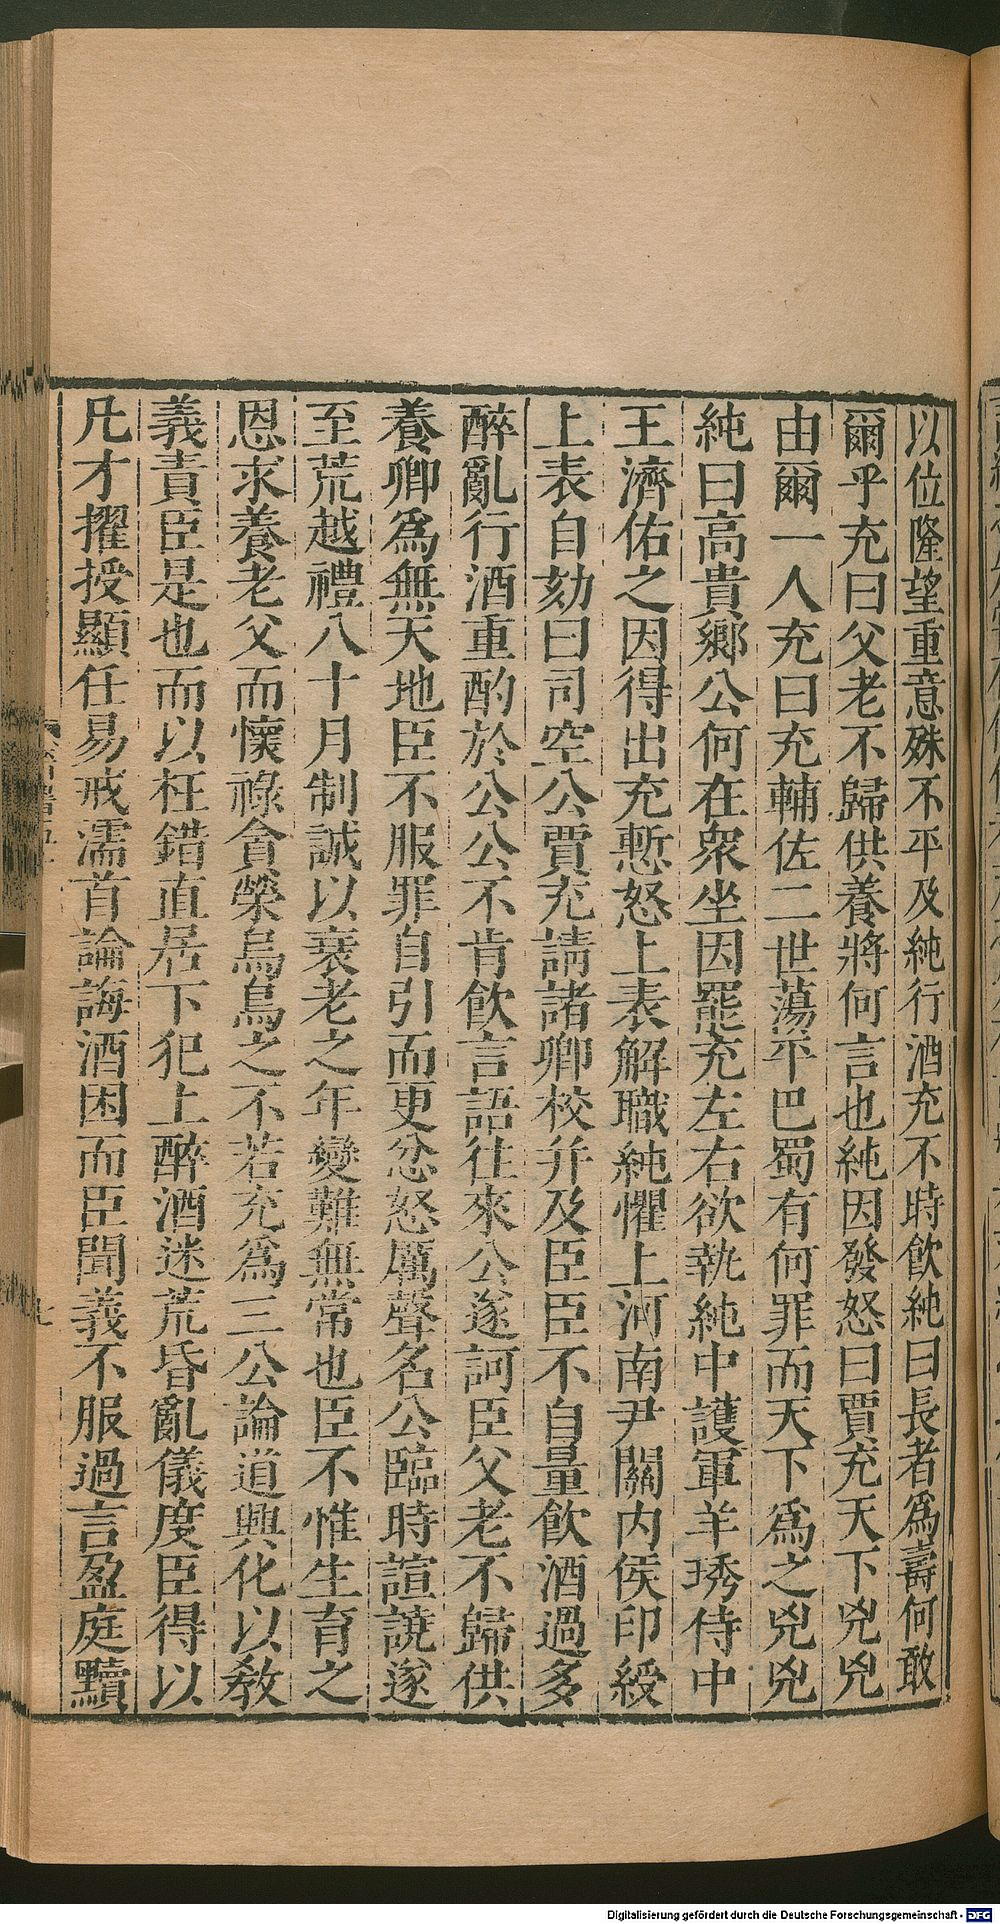 以位隆望重意殊不平及純行酒充不時飲純曰長者爲壽何敢
爾乎充曰父老不歸供養將何言也純因發怒曰賈充天下兇兇
由爾一人充曰充輔佐二世蕩平巴蜀有何罪而天下爲之兇兇
純曰高貴鄉公何在衆坐因罷充左右欲執純中護軍羊琇侍中
王濟佑之因得出充慙怒上表解職純懼上河南尹關內侯印綬
上表自劾曰司空公賈充請諸卿校并及臣臣不自量飲酒過多
醉亂行酒重酌於公公不肯飲言語往來公遂訶臣父老不歸供
養卿爲無天地臣不服罪自引而更忿怒厲聲名公臨時諠譊遂
至荒越禮八十月制誠以衰老之年變難無常也臣不惟生育之
恩求養老父而懷祿貪榮烏鳥之不若充爲三公論道興化以敎
義責臣是也而以枉錯直居下犯上醉酒迷荒昏亂儀度臣得以
凡才擢授顯任易戒濡首論誨酒困而臣聞義不服過言盈庭黷
Digitalisierung gefördert durch die Deutsche Forschungsgemeinschaft - DFG